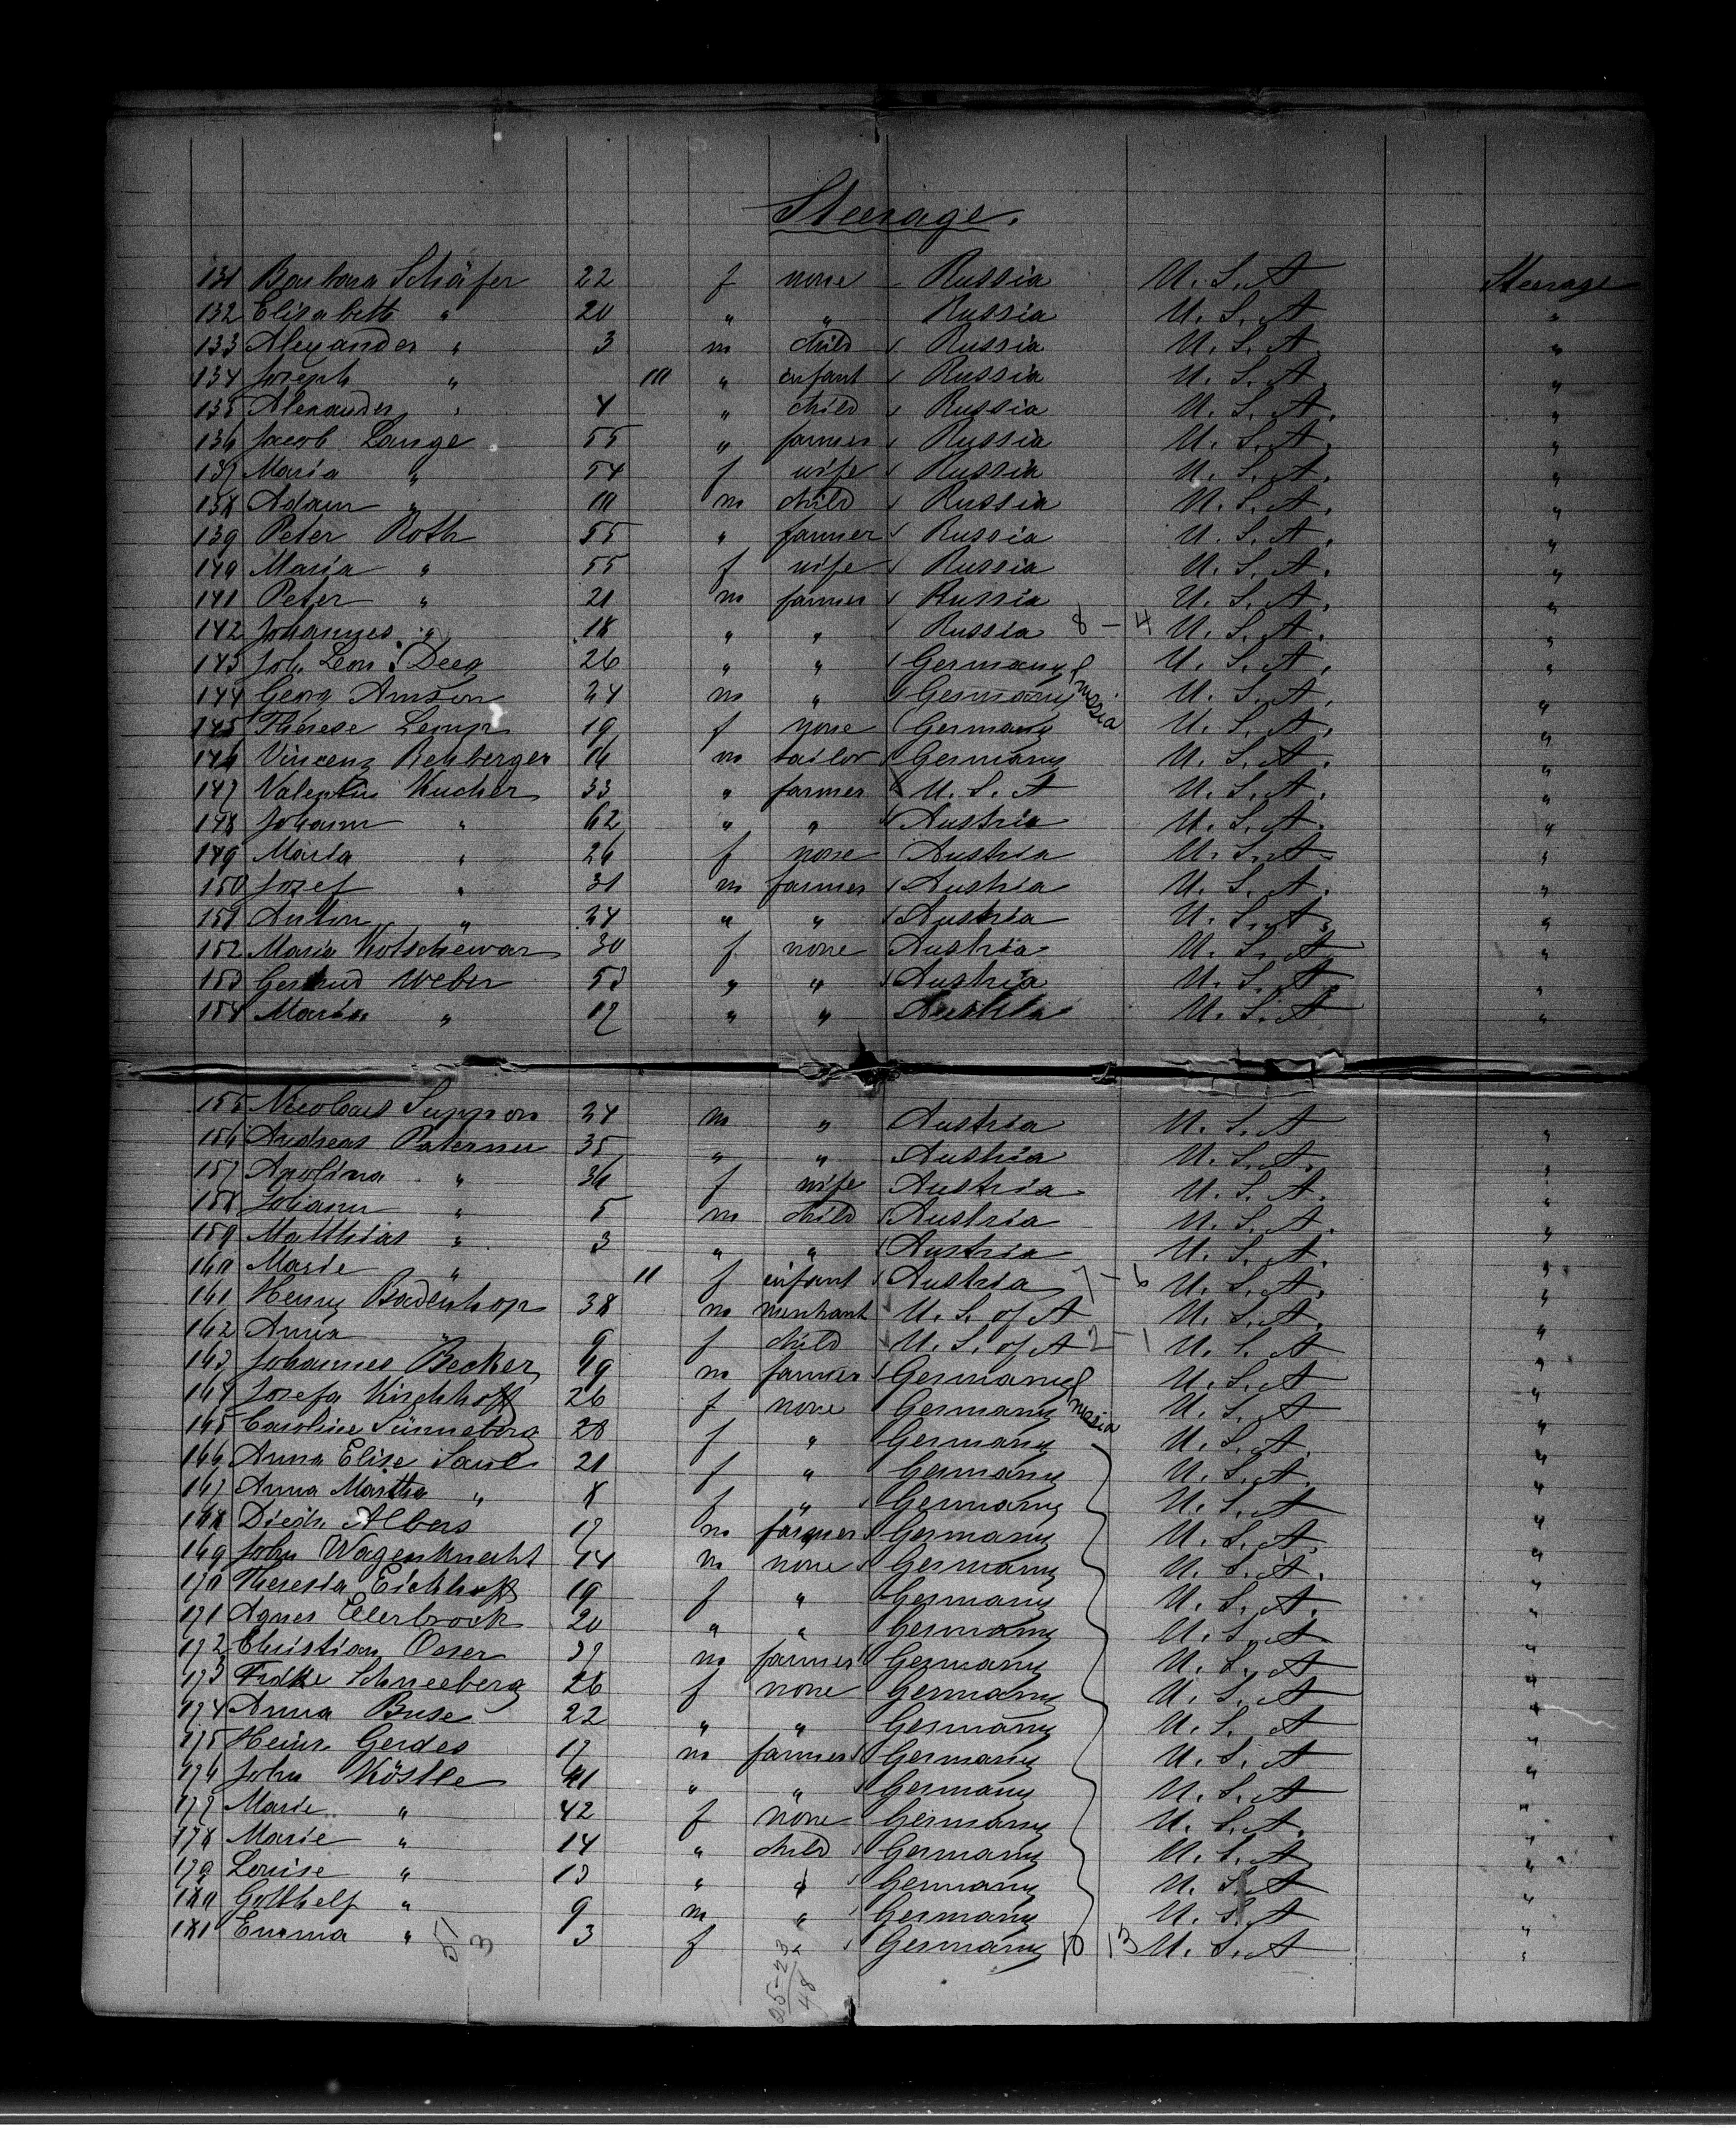 Steerage.
131 Barbara Schäfer 22 f none Russia U. S. A Steerage
132 Elisabeth " 20 " " Russia U. S. A "
133 Alexander " 3 m child Russia U. S. A. "
134 Joseph " 10 " infant Russia U. S. A. "
135 Alexander " 4 " child Russia U. S. A. "
136 Jacob Lange 55 " farmer Russia U. S. A. "
137 Maria " 54 f wife Russia U. S. A. "
138 Adam " 10 m child Russia U. S. A. "
139 Peter Roth 55 " farmer Russia U. S. A. "
140 Maria " 55 f wife Russia U. S. A. "
141 Peter " 21 m farmer Russia U. S. A. "
142 Johannes " 18 " " Russia 8 - 4 U. S. A. "
143 Joh. Leon. Deeg 26 " " Germany U. S. A. "
144 Georg 24 m " Germany U. S. A. "
145 Therese Lemp 19 f none Germany U. S. A. "
146 Vincenz Rehberger 16 m tailor Germany U. S. A. "
147 Valentin Kucher 33 " farmer U. S. A U. S. A. "
148 Johann " 62 " " Austria U. S. A. "
149 Maria " 26 f none Austria U. S. A. "
150 Jozef " 31 m farmer Austria U. S. A. "
151 Anton " 24 " " Austria U. S. A. "
152 Maria Kotschewar 30 f none Austria U. S. A "
153 Gertrud Weber 53 " " Austria U. S. A. "
154 Maria " 17 " " Austria U. S. A "
155 Nicolaus 24 m " Austria U. S. A "
156 Andreas Paternu 35 " " Austria U. S. A. "
157 Apolina " 36 f wife Austria U. S. A. "
158 Johann " 5 m child Austria U. S. A. "
159 Matthias " 3 " " Austria U. S. A. "
160 Marie " 11 f infant Austria 7 - 6 U. S. A. "
161 Henry Badenhop 38 m merchant U. S. of A U. S. A. "
162 Anna " 9 f child U. S. of A 2 - 1 U. S. A "
163 Johannes Becker 49 m farmer Germany U. S. A "
164 Josefa Kirchhoff 26 f none Germany U. S. A "
165 Caroline Sünneberg 28 f " Germany U. S. A. "
166 Anna Elise Saul 21 f " Germany U. S. A. "
167 Anna Martha " 8 f " Germany U. S. A "
168 Diedr. Albers 17 m farmer Germany U. S. A. "
169 John Wagenknecht 44 m none Germany U. S. A. "
170 Theresia Eickhoff 19 f " Germany U. S. A. "
171 Agnes Ellerbrock 20 " " Germany U. S. A "
172 Christian Oser 37 m farmer Germany U. S. A "
173 Schneeberg 26 f none Germany U. S. A "
174 Anna Buse 22 " " Germany U. S. A "
175 Heinr. Gerdes 17 m farmer Germany U. S. A "
176 John Köstle 41 " " Germany U. S. A "
177 Marie " 42 f none Germany U. S. A. "
178 Marie " 14 " child Germany U. S. A "
179 Louise " 13 " " Germany U. S. A "
180 Gotthelf " 9 m " Germany U. S. A "
181 Emma " 3 f " Germany 10 13 U. S. A "
51
3
25-23
48